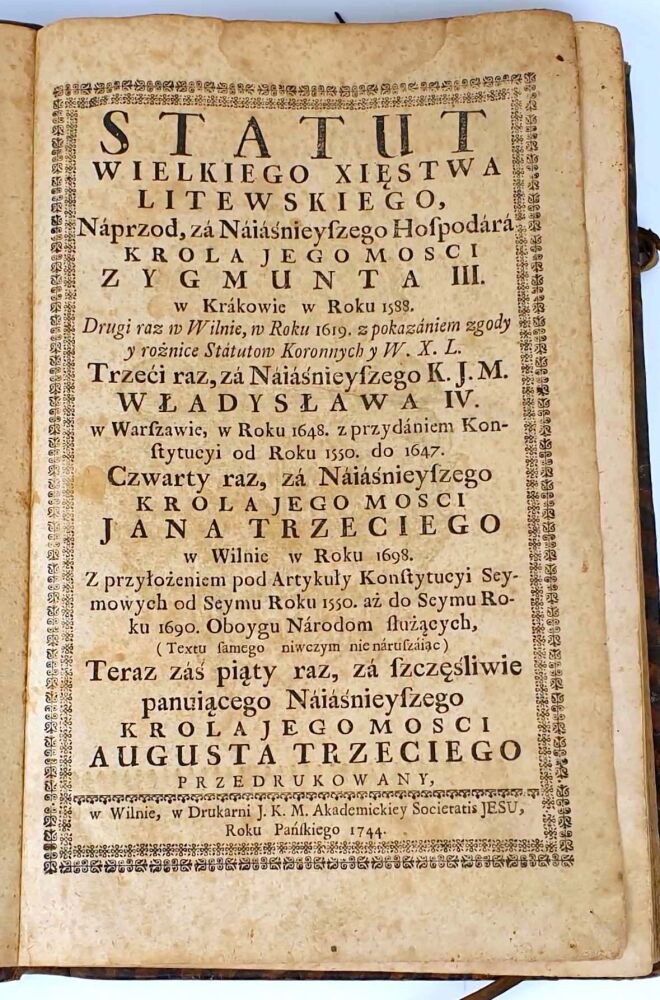 STATUT
WIELKIEGO XIĘSTWA
LITEWSKIEGO,
Náprzod, zá Náiáśnieyſzego Hoſpodárá
KROLA JEGO MOSCI
ZYGMUNTA III.
w Krákowie w Roku 1588.
Drugi raz w Wilnie, w Roku 1619. z pokazániem zgody
y rożnice Státutow Koronnych y W. X. L.
Trzeći raz, zá Náiáśnieyſzego K. J. M.
WŁADYSŁAWA IV.
w Warſzawie, w Roku 1648. z przydániem Kon-
ſtytucyi od Roku 1550. do 1647.
Czwarty raz, zá Náiáśnieyſzego
KROLA JEGO MOSCI
JANA TRZECIEGO
w Wilnie w Roku 1698.
Z przyłożeniem pod Artykuły Konſtytucyi Sey-
mowych od Seymu Roku 1550. aż do Seymu Ro-
ku 1690. Oboygu Národom ſłużących,
(Textu ſamego niwczym nie náruſzáiąc)
Teraz záś piąty raz, zá ſzczęśliwie
panuiącego Náiáśnieyſzego
KROLA JEGO MOSCI
AUGUSTA TRZECIEGO
PRZEDRUKOWANY,
w Wilnie, w Drukarni J. K. M. Akademickiey Societatis JESU,
Roku Pańſkiego 1744.